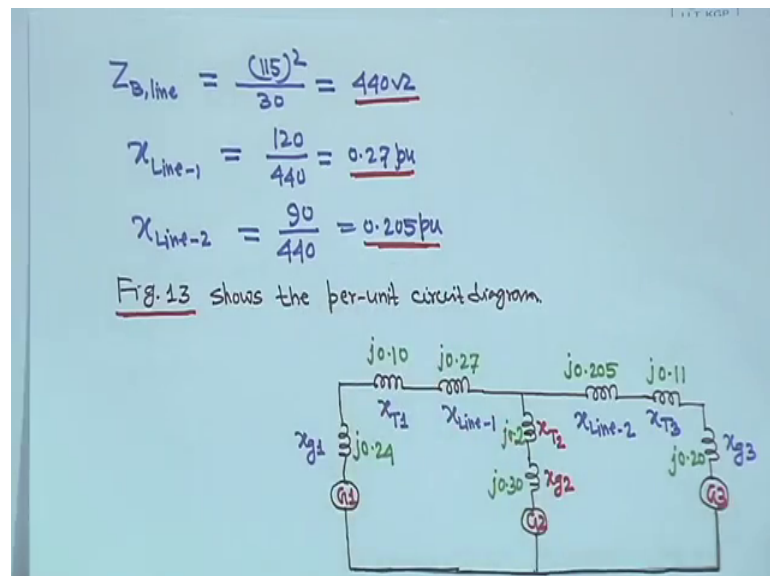 IIT KGP
Z_B,line = (115)² / 30 = 440Ω
x_Line-1 = 120 / 440 = 0.27 pu
x_Line-2 = 90 / 440 = 0.205 pu
Fig. 13 shows the per-unit circuit diagram.
j0.10 j0.27 j0.205 j0.11
x_T1 x_Line-1 x_T2 x_Line-2 x_T3
x_g1 j0.24 j0.20 x_g3
j0.30 x_g2
G1 G2 G3